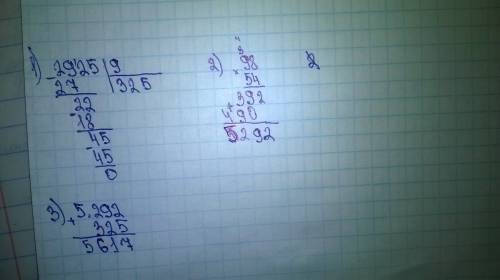 1) 2925 | 9
27 | 325
22
18
45
45
0
2) 98
× 54
392
490
5292
2
3) + 5.292
325
5617